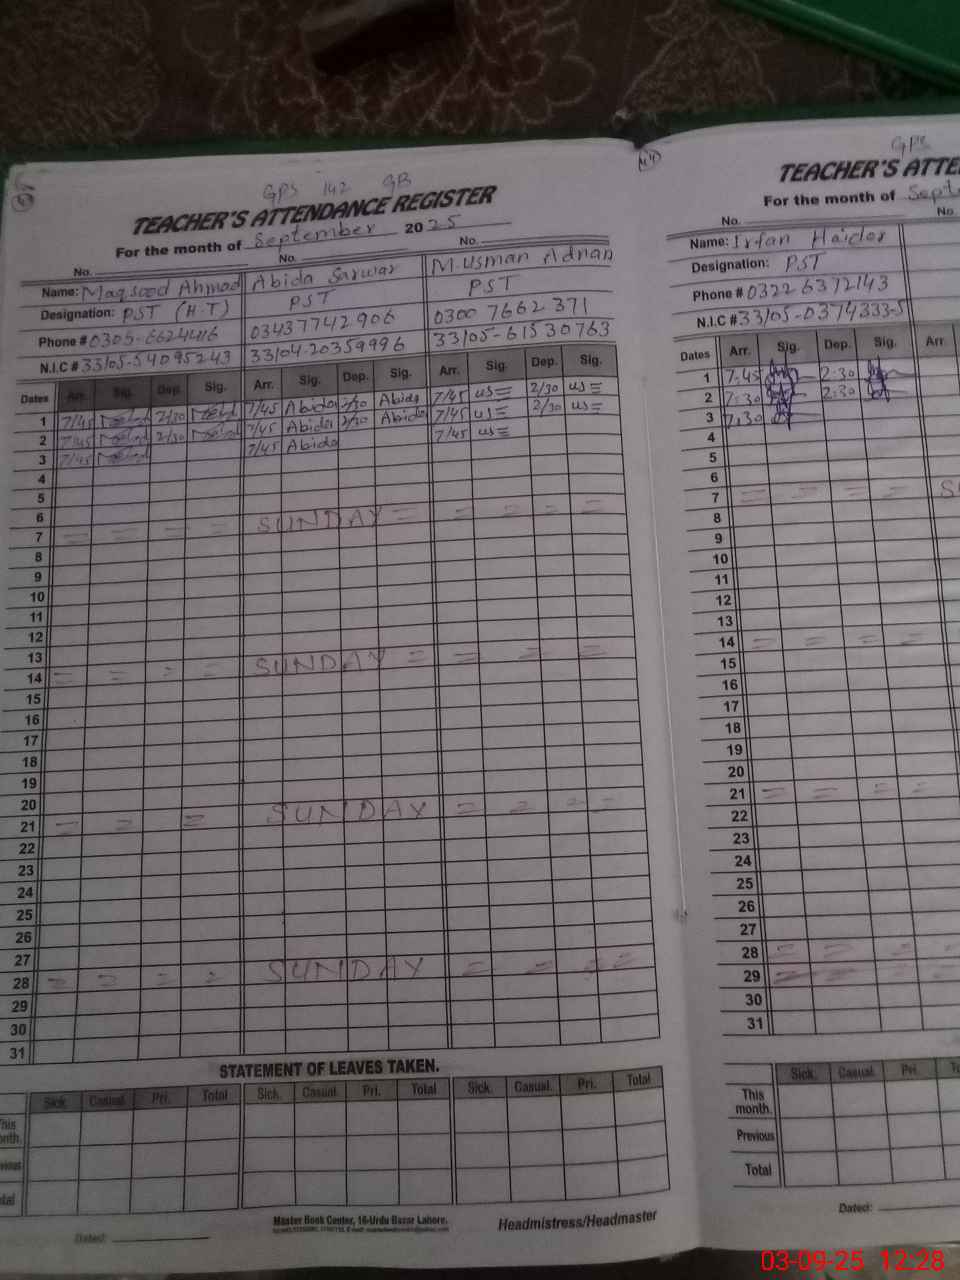 GPS 142 GB
TEACHER'S ATTENDANCE REGISTER
For the month of September 2025
No. No. No.
Name: Maqsood Ahmad Abida Sarwar M. Usman Adnan
Designation: PST (H.T) PST PST
Phone # 0305-6624416 03437742906 0300 7662 371
N.I.C # 33105-54095243 33104-20359996 33105-61530763
Dates Arr. Sig. Dep. Sig. Arr. Sig. Dep. Sig. Arr. Sig. Dep. Sig.
1 7/45 2/30 7/45 Abida 2/30 Abida 7/45 us 2/30 us
2 7/45 2/30 7/45 Abida 2/30 Abida 7/45 us 2/30 us
3 7/45 7/45 Abida 7/45 us
4
5
6
7 = = = = SUNDAY = = = = =
8
9
10
11
12
13
14 = = = = SUNDAY = = = =
15
16
17
18
19
20
21 = = = SUNDAY = = = =
22
23
24
25
26
27
28 = = = = SUNDAY = = = =
29
30
31
STATEMENT OF LEAVES TAKEN.
Sick. Casual. Pri. Total Sick. Casual. Pri. Total Sick. Casual. Pri. Total
This
month.
Previous
Total
Master Book Center, 16-Urdu Bazar Lahore.
Dated: Headmistress/Headmaster
GPS
TEACHER'S ATTE
For the month of Sept
No. No
Name: Irfan Haider
Designation: PST
Phone # 03226372143
N.I.C # 33105-0374333-5
Dates Arr. Sig. Dep. Sig. Arr.
1 7:45 2:30
2 7:30 2:30
3 7:30
4
5
6
7 = = = = SU
8
9
10
11
12
13
14 = = = =
15
16
17
18
19
20
21 = = = =
22
23
24
25
26
27
28 = = = =
29 = = = =
30
31
Sick. Casual. Pri. To
This
month.
Previous
Total
Dated:
03-09-25 12:28